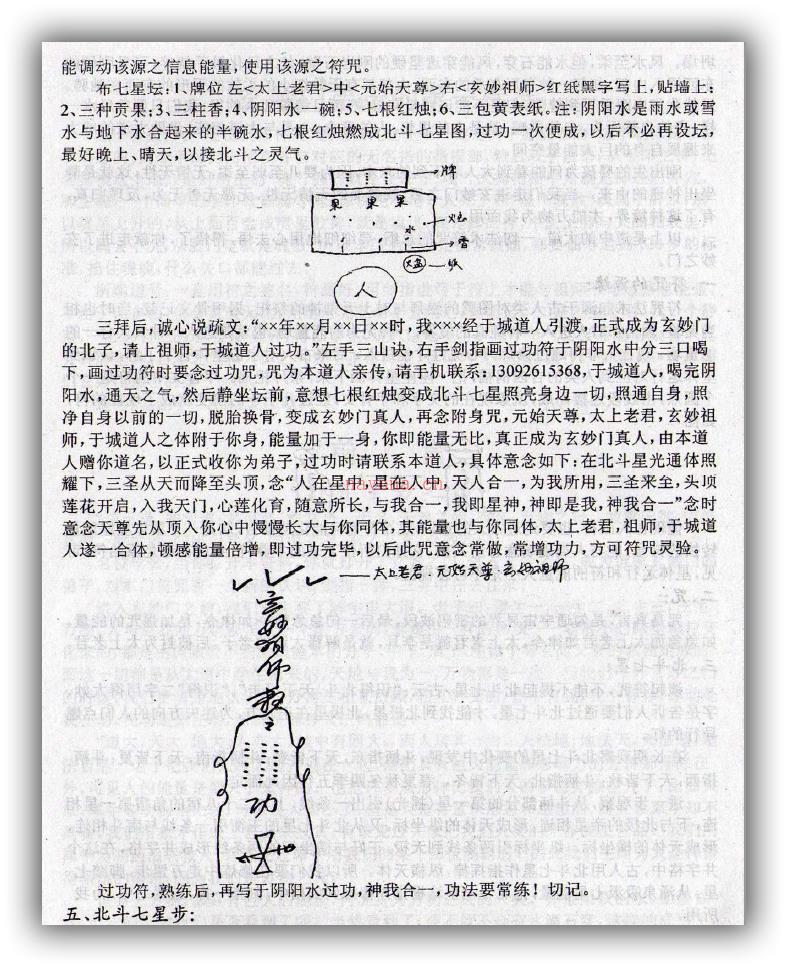 能调动该源之信息能量，使用该源之符咒。
布七星坛：1、牌位 左<太上老君>中<元始天尊>右<玄妙祖师>红纸黑字写上，贴墙上；
2、三种贡果；3、三柱香；4、阴阳水一碗；5、七根红烛；6、三包黄表纸。注：阴阳水是雨水或雪
水与地下水合起来的半碗水，七根红烛燃成北斗七星图，过功一次便成，以后不必再设坛，
最好晚上、晴天，以接北斗之灵气。
牌
果 果 果
烛
水
香
火盆 纸
人
三拜后，诚心说疏文：“××年××月××日××时，我×××经于城道人引渡，正式成为玄妙门
的北子，请上祖师，于城道人过功。”左手三山诀，右手剑指画过功符于阴阳水中分三口喝
下，画过功符时要念过功咒，咒为本道人亲传，请手机联系：13092615368，于城道人，喝完阴
阳水，通天之气，然后静坐坛前，意想七根红烛变成北斗七星照亮身边一切，照通自身，照
净自身以前的一切，脱胎换骨，变成玄妙门真人，再念附身咒，元始天尊，太上老君，玄妙祖
师，于城道人之体附于你身，能量加于一身，你即能量无比，真正成为玄妙门真人，由本道
人赠你道名，以正式收你为弟子，过功时请联系本道人，具体意念如下：在北斗星光通体照
耀下，三圣从天而降至头顶，念“人在星中，星在人中，天人合一，为我所用，三圣来至，头顶
莲花开启，入我天门，心莲化育，随意所长，与我合一，我即星神，神即是我，神我合一”念时
意念天尊先从顶入你心中慢慢长大与你同体，其能量也与你同体，太上老君，祖师，于城道
人遂一合体，顿感能量倍增，即过功完毕，以后此咒意念常做，常增功力，方可符咒灵验。
太上老君 元始天尊 玄妙祖师
玄
妙
祖
师
敕
之
功
过功符，熟练后，再写于阴阳水过功，神我合一，功法要常练！切记。
五、北斗七星步：